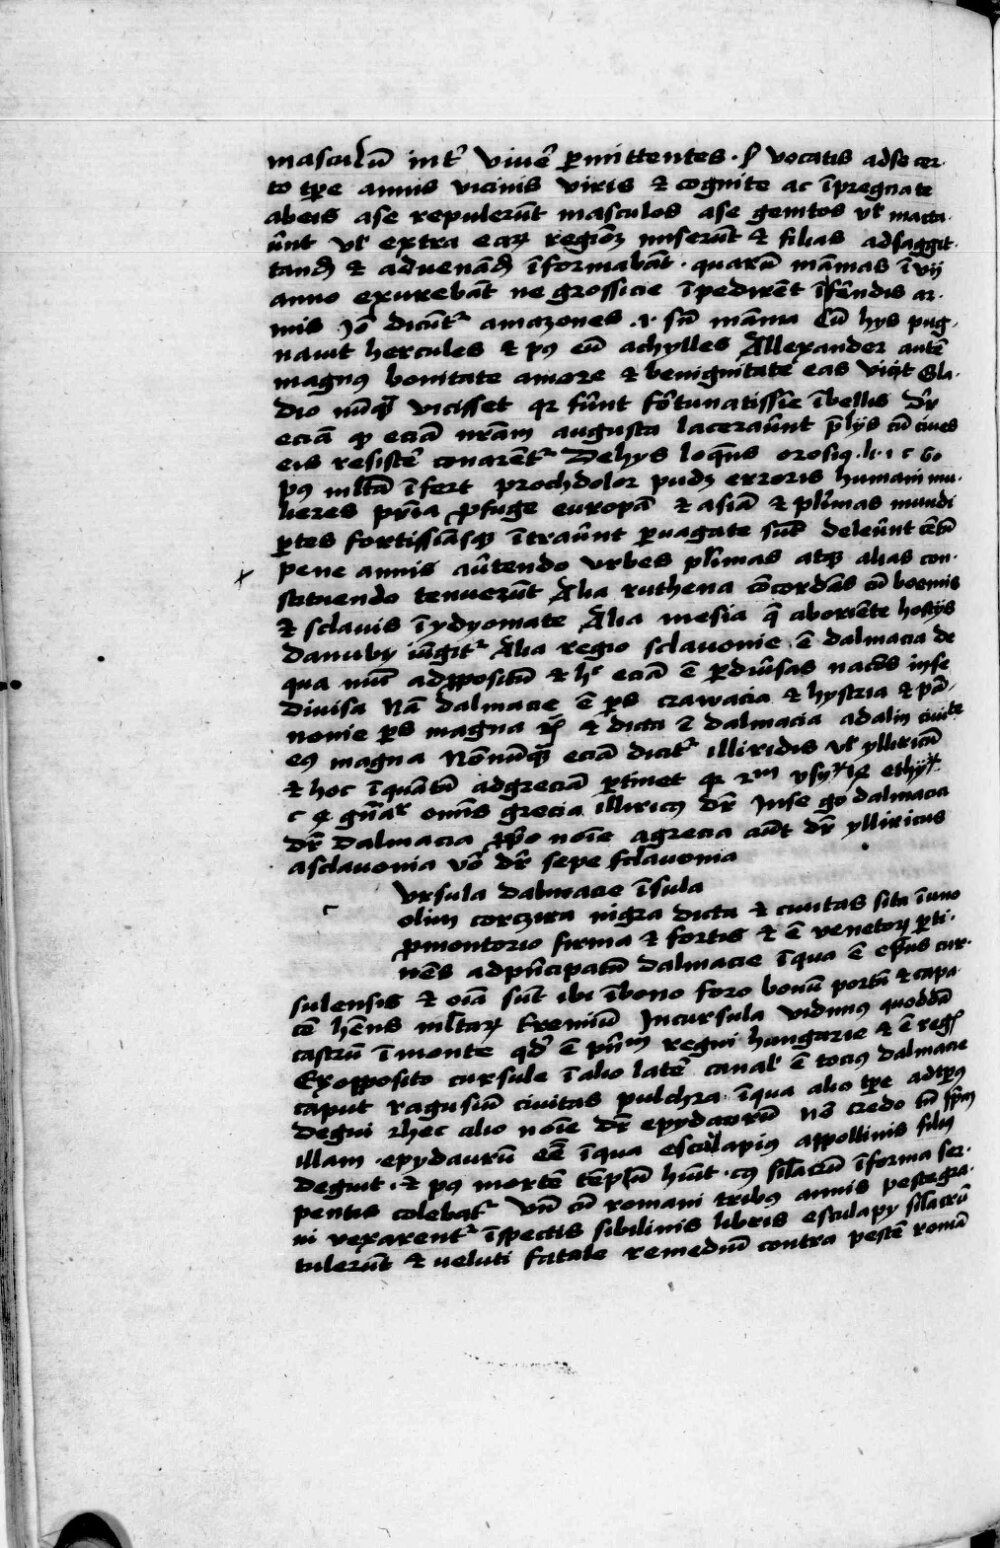 masculū int͛ viue͛ ꝑmittentes · s; vocatis adse cer-
to tp̄e annis vicinis viris ⁊ cognite ac īpregnate
abeis ase repulerūt masculos ase genitos vl̛ macta-
ūnt vl̛ extra eaꝝ regiōꝫ miserūt ⁊ filias adsaggit-
tand̄ ⁊ ad venand̄ īformabāt · quarū māmas ī vij
anno exurebāt ne grossicie īpedirēt īferēndis ar-
mis Jō dicūt͛ amazones .i. sn̄ māma Cū hys pug-
nauit hercules ⁊ pꝰ eū achylles Allexander autē
magnꝰ bonitate amore ⁊ benignitate eas vicit Gla-
dio nūqꝫ vicisset qꝛ fūnt fōtunatissīe ībellis Dr̄
eciā qꝫ eciā nr̄am augusta laceraūnt p̄lijs cū ciues
eis resiste͛ conarēt͛ Dehys loq̄ns orosiꝰ . li . i c 60
pꝰ ml̄ta īfert prochdolor pudꝫ erroris humani mu-
lieres pr̄ia ꝓfuge europā ⁊ asiā ⁊ pl̄imas mundi
ꝑtes fortissimasqꝫ ītraūnt ꝑuagate sūt deleūnt cētū
pene annis aūtendo vrbes pl̄imas atqꝫ alias con-
stituendo tenuerūt Alia ruthena cōcordās cū boemis
⁊ sclauis īydyomate Alia mesia q̄ aboriēte hostijs
danuby iūgit͛ Alia regio sclauonie ē dalmacia de
qua nūc adpositū ⁊ h͛ eciā ē ꝑdiūsas nacōs inse
diuisa Nā dalmacie ē ꝑs crawacia ⁊ hystria ⁊ pā-
nonie ꝑs magna ⁊ dicta ē dalmacia adalin ciuite
eiꝰ magna Nōnūqꝫ eciā dicit͛ illiridis vl̛ ylliricū
⁊ hoc īquantū adgreciā ꝑtinet
omīs grecia illiricꝰ dr̄ Inse gō dalmacia
dr̄ Dalmacia ꝓpo noīe agrecia aūt dr̄ ylliricus
asclauonia vō dr̄ sepe sclauonia
vrsula dalmacie īsula
olim corczira nigra dicta ⁊ ciuitas sita ī uno
ꝓmontorio firma ⁊ fortis ⁊ ē venetoꝝ ꝑti-
nēs adpn̄cipatū dalmacie īqua ē ep̄us cur-
sulensis ⁊ oīa sūt ibi ībono foro bonū portū ⁊ capa-
cē hēns ml̄taꝝ tremiū Incursula vidimꝰ quoddā
castrū īmonte qd̄ ē regni hungarie ⁊ ē reg͛
Exopposito cursule ī alio late͛ canal̛ ē tociꝰ dalmacie
caput ragusiū ciuitas pulchra īqua alio tp̄e adtpꝰ
degui ⁊ hec alio noīe dr̄ epydaurū nō credo tn̄
illam . epydaurū eē īqua esculapiꝰ appollinis filiꝰ
deguit . ⁊ pꝰ mortē tēplū hūit . cꝰ sil̄acrū īforma ser-
pentis colebat͛ Vn̄ cū romani tribꝰ annis pestegra-
ui vexarent͛ īspectis sibilinis libris esculapy sil̄acrū
tulerūt ⁊ veluti fatale remediū contra pestē romā